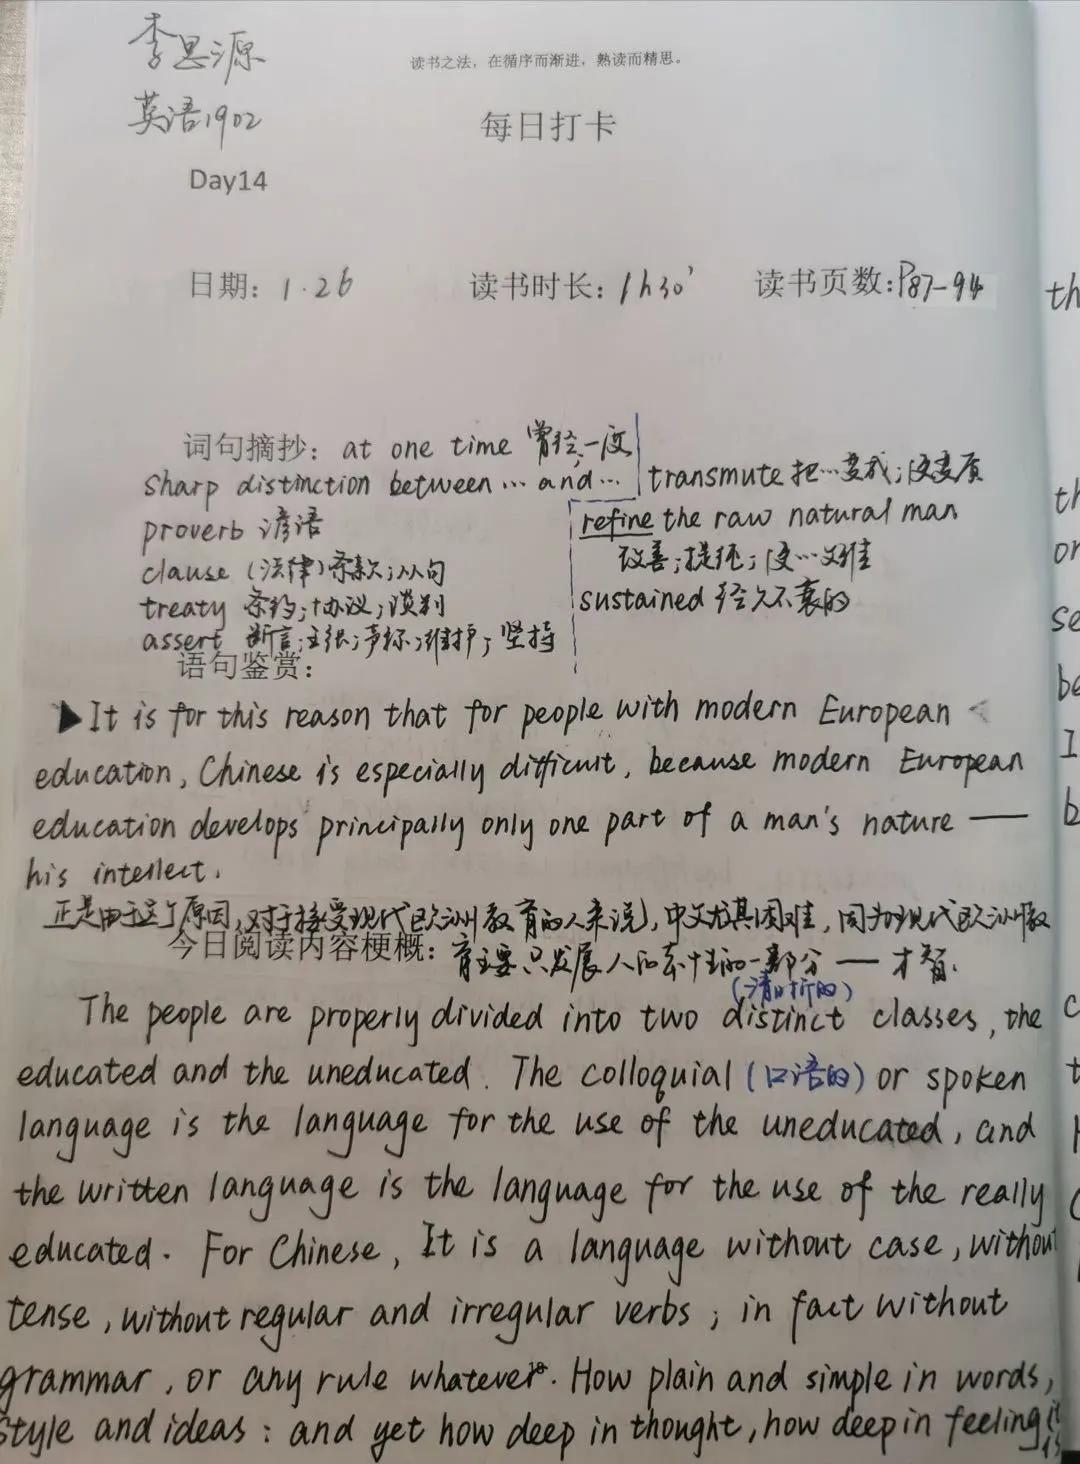 李思源
读书之法，在循序而渐进，熟读而精思。
英语1902
每日打卡
Day14
日期：1.26 读书时长：1h30' 读书页数：P87-94
词句摘抄：at one time 曾经，一度
sharp distinction between … and …
proverb 谚语
clause （法律）条款；从句
treaty 条约；协议；谈判
assert 断言；主张；声称；维护；坚持
transmute 把…变成；使变质
refine the raw natural man
改善；提纯；使…文雅
sustained 经久不衰的
语句鉴赏：
▶It is for this reason that for people with modern European
education, Chinese is especially difficult, because modern European
education develops principally only one part of a man's nature ——
his intellect.
正是由于这个原因，对于接受现代欧洲教育的人来说，中文尤其困难，因为现代欧洲教
今日阅读内容梗概：育主要只发展人的本性的一部分 —— 才智.
(清晰的)
The people are properly divided into two distinct classes, the
educated and the uneducated. The colloquial (口语的) or spoken
language is the language for the use of the uneducated, and
the written language is the language for the use of the really
educated. For Chinese, It is a language without case, without
tense, without regular and irregular verbs; in fact without
grammar, or any rule whatever. How plain and simple in words,
style and ideas : and yet how deep in thought, how deep in feeling it
is
th
th
or
se
be
I
b
c
t